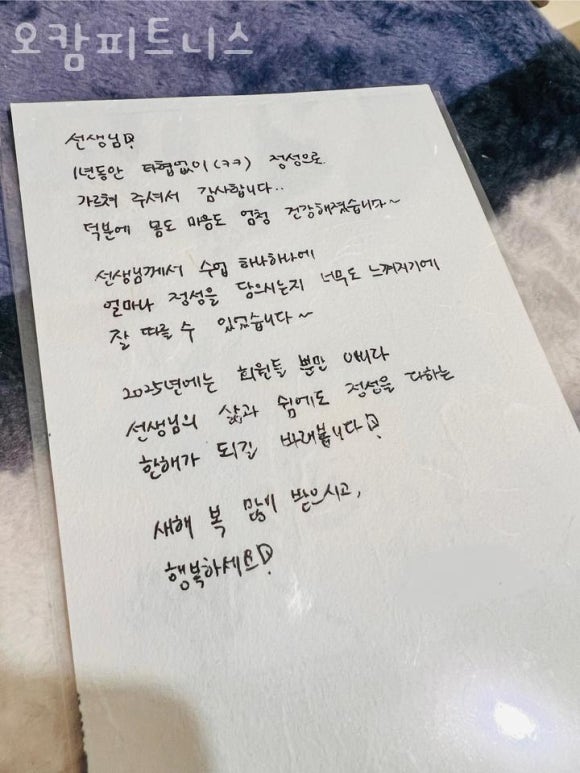 오캄피트니스
선생님♡
1년동안 타협없이(ㅋㅋ) 정성으로
가르쳐 주셔서 감사합니다..
덕분에 몸도 마음도 엄청 건강해졌습니다~
선생님께서 수업 하나하나에
얼마나 정성을 담으시는지 너무도 느껴지기에
잘 따를 수 있었습니다~
2025년에는 회원들 뿐만 아니라
선생님의 삶과 쉼에도 정성을 다하는
한해가 되길 바래봅니다♡
새해 복 많이 받으시고,
행복하세요♡